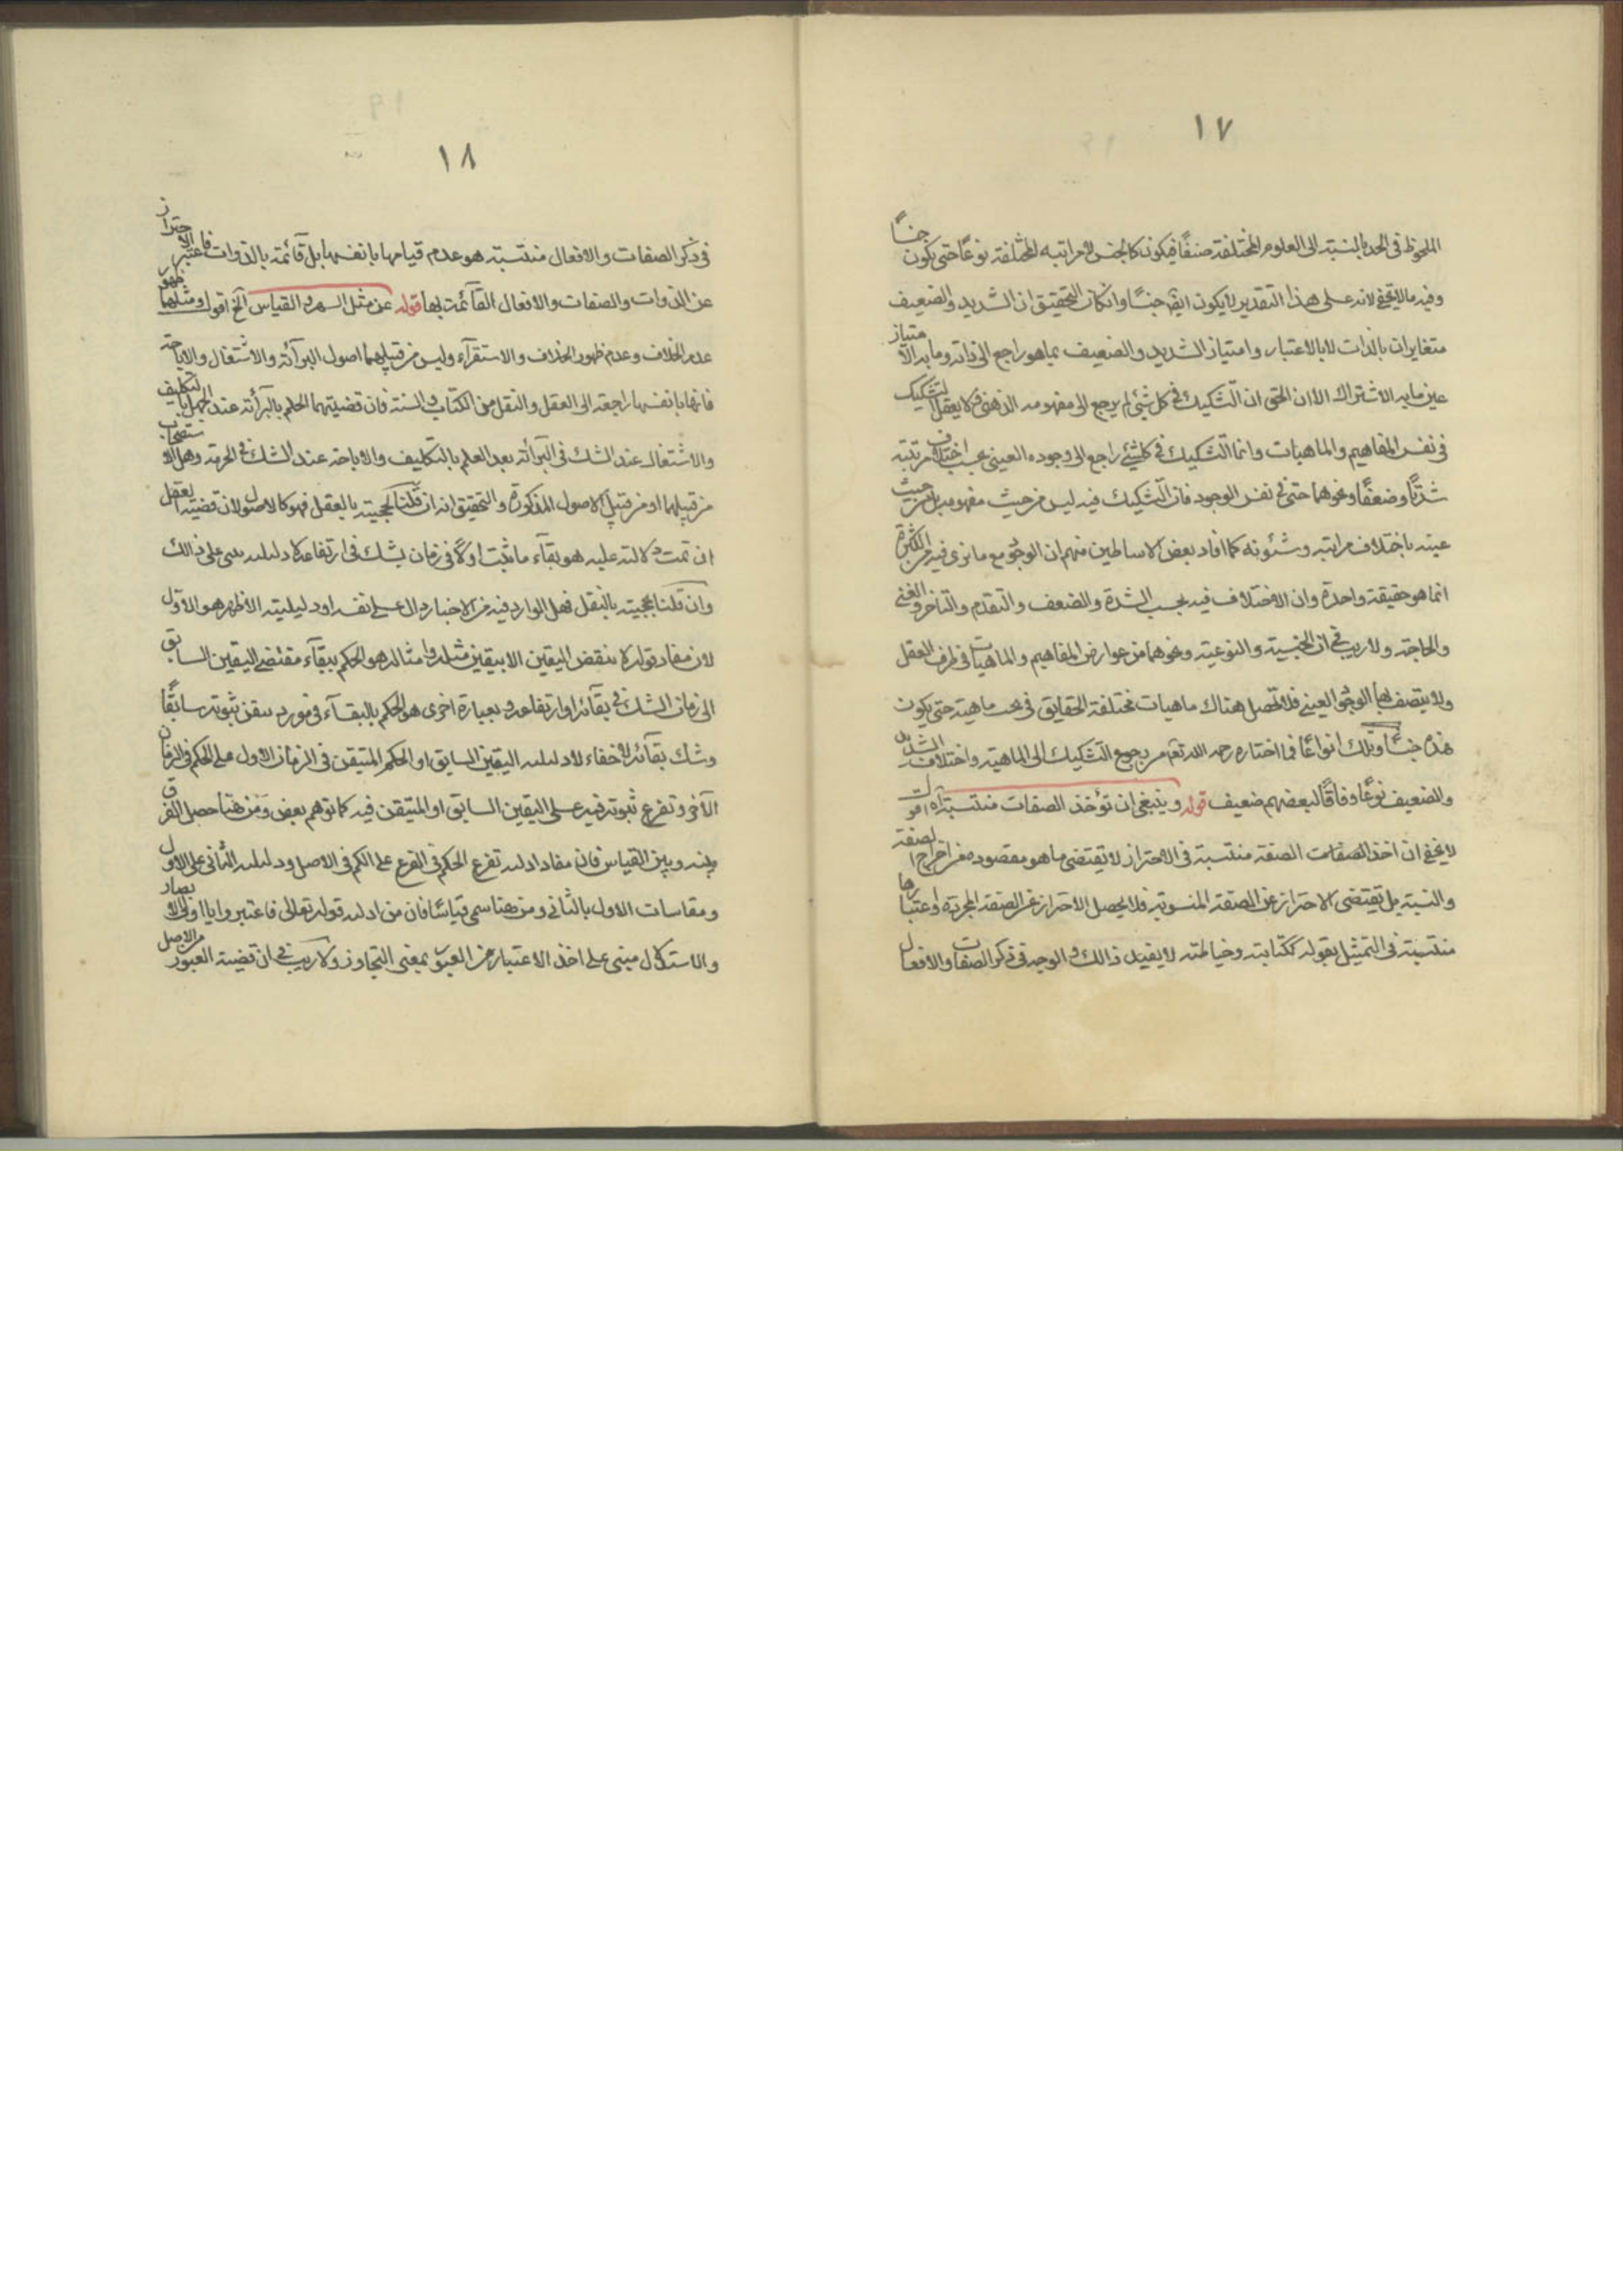 ١٧
الملحوظ في الحد بالنسبة الى العلوم المختلفة صنفًا فيكون كالجنس لا مراتبه المختلفة نوعًا حتى يكون جنسًا
وفيه ما لا يخفى لانه على هذا التقدير لا يكون ايضً جنسًا وان كان التحقيق ان الشديد والضعيف
متغايران بالذات لا بالاعتبار وامتياز الشديد والضعيف بما هو راجع الى ذاته وما به الامتياز
عين ما به الاشتراك الا ان الحق ان التشكيك في كل شئ لم يرجع الى مفهومه الذهني لا يعقل التشكيك
في نفس المفاهيم والماهيات وانما التشكيك في كل شئ راجع الى وجوده العيني بحسب اختلاف مرتبته
شدّتًا وضعفًا ونحوهما حتى في نفس الوجود فان التشكيك فيه ليس من حيث مفهومه بل من حيث
عينه باختلاف مراتبه وشئونه كما افاد بعض الاساطين منهم ان الوجود مع ما نرى فيه من الكثرة
انما هو حقيقة واحدة وان الاختلاف فيه بحسب الشدة والضعف والتقدم والتاخر والغنى
والحاجة ولا ريب في ان الجنسية والنوعية ونحوهما من عوارض المفاهيم والماهيات في ظرف العقل
ولا يتصف بهما الوجود العيني فلا تحصل هناك ماهيات مختلفة الحقايق في تحت ماهية حتى يكون
هذه جنسًا وتلك انواعًا فما اختاره رحمه الله تعم من رجوع التشكيك الى الماهية واختلاف الشديد
والضعيف نوعًا وفاقًا لبعضهم ضعيف قوله وينبغي ان تؤخذ الصفات منتسبة آه اقول
لا يخفى ان اخذ الصفات الصفة منتسبة في الاحتراز لا يقتضي ما هو مقصوده من اخراج الصفة
والنسبة بل تقتضي الاحتراز عن الصفة المنسوبة فلا يحصل الاحتراز عن الصفة المجردة واعتبارها
منتسبة في التمثيل بقوله ككتابته وخياطته لا يفيد ذالك والوجه في ذكر الصفات والافعال
١٨
في ذكر الصفات والافعال منتسبة هو عدم قيامها بانفسها بل قائمة بالذوات فاعتبر الاحتراز
عن الذوات والصفات والافعال القائمة بها قوله عن مثل السهرة القياس آلخ اقول ومثلهما ظهور
عدم الخلاف وعدم ظهور الخلاف والاستقرآء وليس من قبيلهما اصول البرآئة والاشتغال والاباحة
فانها بانفسها راجعة الى العقل والنقل من الكتاب والسنة فان قضيتهما الحكم بالبرآئة عند الجهل بالتكليف
والاشتغال عند الشك في البرآئة بعد العلم بالتكليف والاباحة عند الشك في الحرمة وهل الاستصحاب
من قبيلهما او من قبيل الاصول المذكورة والتحقيق انه ان قلنا بحجيته بالعقل فهو كالاصول لان قضية العقل
ان تمت دلالته عليه هو بقآء ما ثبت اولًا في زمان يشك في ارتفاعه لا دليليه شئ على ذالك
وان قلنا بحجيته بالنقل فهل الوارد فيه من الاخبار دال على نفسه او دليليته الاظهر هو الاول
لان مفاد قوله لا ينقض اليقين الا بيقين مثله وامثاله هو الحكم ببقآء مقتضى اليقين السابق
الى زمان الشك في بقآئه او ارتفاعه وبعبارة اخرى هو الحكم بالبقآء في مورد تيقن بثبوته سابقًا
وشك بقآئه لاخفاء لا دليليه اليقين السابق او الحكم المتيقن في الزمان الاول على الحكم في الزمان
الآخر وتفرع ثبوته فيه على اليقين السابق او المتيقن فيه كما توهم بعض ومن هنا حصل الفرق
بينه وبين القياس فان مفاد ادلته تفرع الحكم في الفرع على الكم في الاصل ودليليه الثاني على الاول
ومقاسات الاول بالثاني ومن هنا سمي قياسًا فان من ادلته قوله تعالى فاعتبروا يا اولى الابصار
والاستدلال مبني على اخذ الاعتبار من العبور بمعنى التجاوز ولا ريب في ان قضية العبور من الاصل